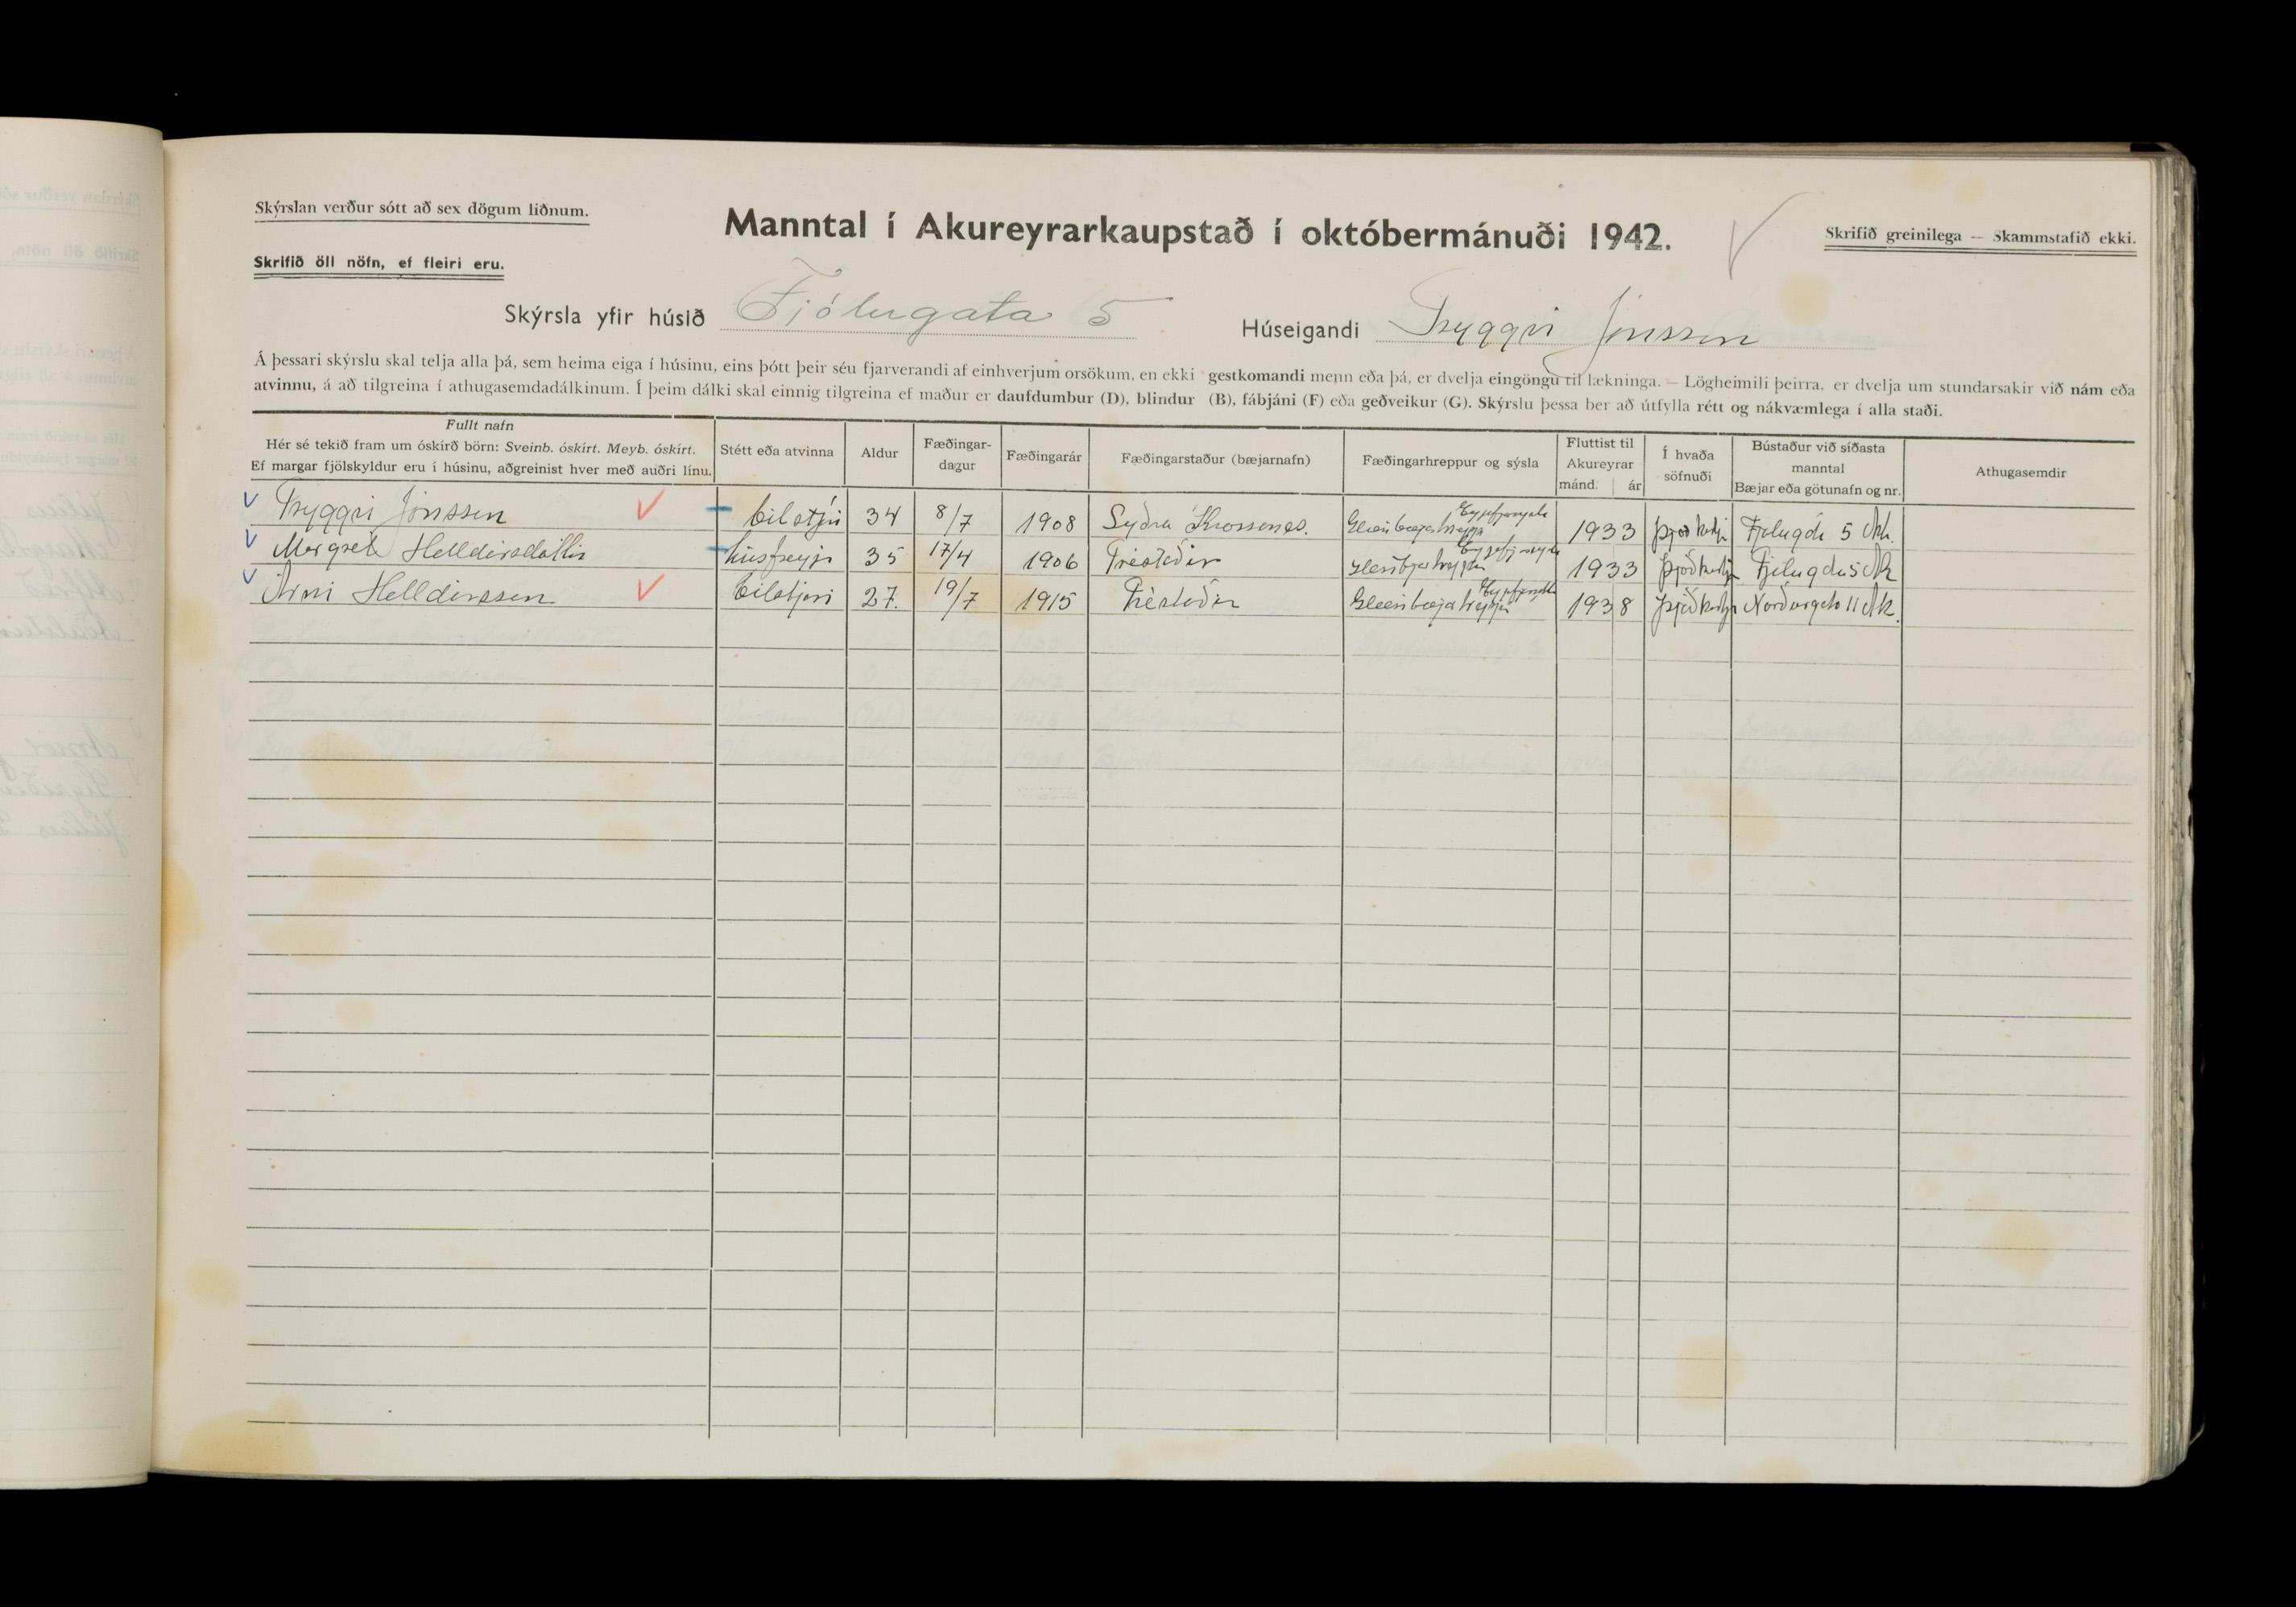 Skýrslan verður sótt að sex dögum liðnum.
Manntal í Akureyrarkaupstað í októbermánuði 1942.
Skrifið greinilega — Skammstafið ekki.
Skrifið öll nöfn, ef fleiri eru.
Skýrsla yfir húsið Fjólugata 5 Húseigandi Tryggvi Jónsson
Á þessari skýrslu skal telja alla þá, sem heima eiga í húsinu, eins þótt þeir séu fjarverandi af einhverjum orsökum, en ekki gestkomandi menn eða þá, er dvelja eingöngu til lækninga. — Lögheimili þeirra, er dvelja um stundarsakir við nám eða
atvinnu, á að tilgreina í athugasemdadálkinum. Í þeim dálki skal einnig tilgreina ef maður er daufdumbur (D), blindur (B), fábjáni (F) eða geðveikur (G). Skýrslu þessa ber að útfylla rétt og nákvæmlega í alla staði.
Fullt nafn
Hér sé tekið fram um óskírð börn: Sveinb. óskírt. Meyb. óskírt.
Ef margar fjölskyldur eru í húsinu, aðgreinist hver með auðri línu.
Stétt eða atvinna
Aldur
Fæðingar-
dagur
Fæðingarár
Fæðingarstaður (bæjarnafn)
Fæðingarhreppur og sýsla
Fluttist til
Akureyrar
mánd. ár
Í hvaða
söfnuði
Bústaður við síðasta
manntal
Bæjar eða götunafn og nr.
Athugasemdir
Tryggvi Jónsson bílstjóri 34 8/7 1908 Syðra Krossanes. 1933 Fjólugötu 5 Ak.
Margrét Halldórsdóttir húsfreyja 35 17/4 1906 1933 Þjóðkirkju Fjólugötu 5 Ak
Árni Halldórsson bílstjóri 27. 19/7 1915 Glæsibæjarhreppi 1938 Þjóðkirkju Norðurgata 11 Ak.